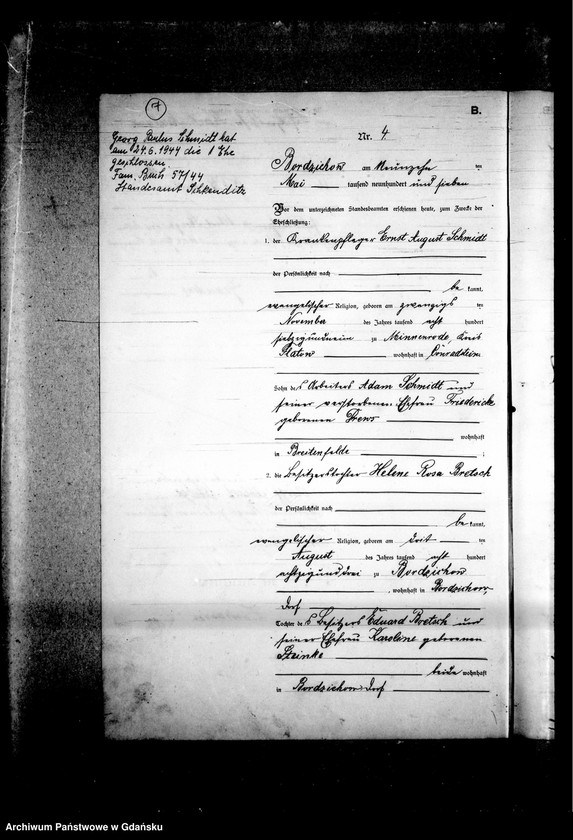 7
B.
Georg Paulus Schmidt hat
am 24.6.1944 die 1 Ehe
geschlossen.
Fam. Buch 57/44
Standesamt Schkeuditz
Nr. 4
Bordzichow am neunzehn ten
Mai tausend neunhundert und sieben
Vor dem unterzeichneten Standesbeamten erschienen heute, zum Zwecke der
Eheschließung:
1. der Krankenpfleger Ernst August Schmidt
der Persönlichkeit nach
be kannt,
evangelischer Religion, geboren am zwanzigs ten
November des Jahres tausend acht hundert
siebzigundnein zu Minnenrode, Kreis
Flatow wohnhaft in Conradstein
Sohn des Arbeiters Adam Schmidt und
seiner verstorbenen Ehefrau Friedericke
geborenen Drews
wohnhaft
in Breitenfelde ;
2. die Besitzerstochter Helene Rosa Bretsch
der Persönlichkeit nach
be kannt,
evangelischer Religion, geboren am drit ten
August des Jahres tausend acht hundert
achtzigunddrei zu Bordzichow
, wohnhaft in Bordzichow,
Dorf
Tochter des Besitzers Eduard Bretsch und
seiner Ehefrau Karoline geborenen
Steinke
beide wohnhaft
in Bordzichow Dorf
Archiwum Państwowe w Gdańsku